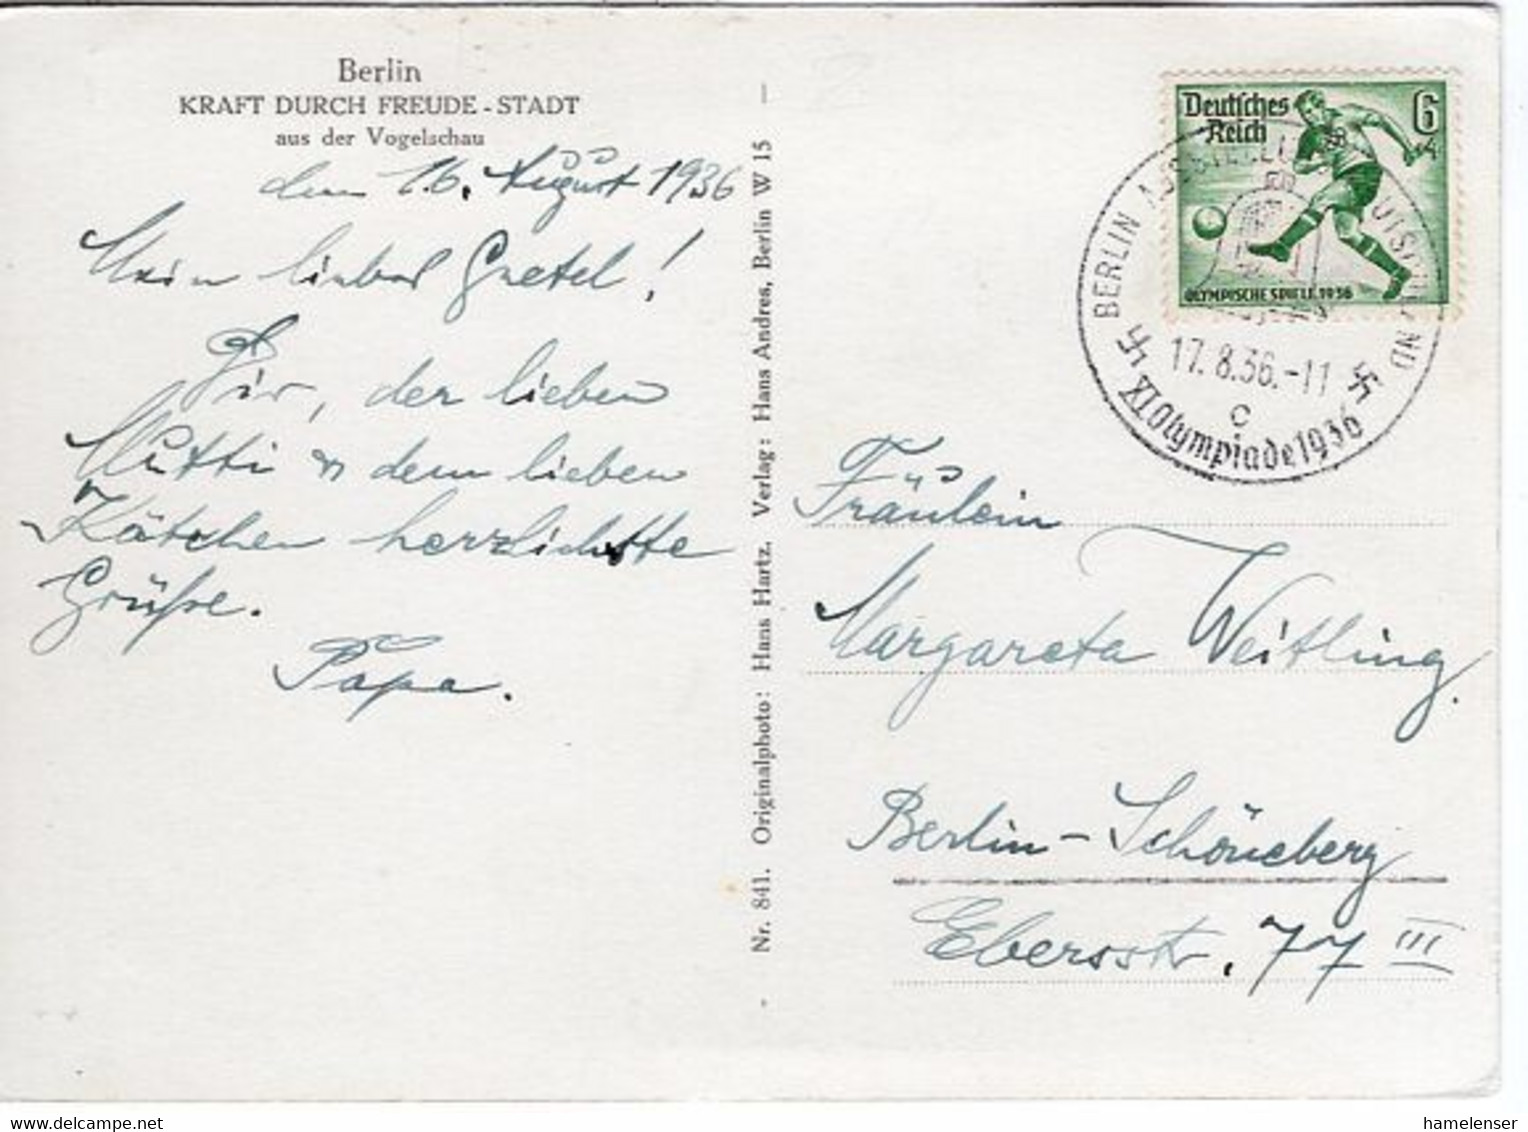 Berlin
KRAFT DURCH FREUDE-STADT
aus der Vogelschau
den 16. August 1936
Mein liebes Gretel!
Dir, der lieben
Mutti u dem lieben
Kätchen herzlichste
Grüße.
Papa.
Nr. 841. Originalphoto: Hans Hartz. Verlag: Hans Andres, Berlin W 15
Deutsches
Reich
6
+4
OLYMPISCHE SPIELE 1936
BERLIN AUSSTELLUNG DEUTSCHLAND
17.8.36.-11
c
XI Olympiade 1936
Fräulein
Margareta Weitling.
Berlin-Schöneberg
Ebersstr. 77 III
hamelenser